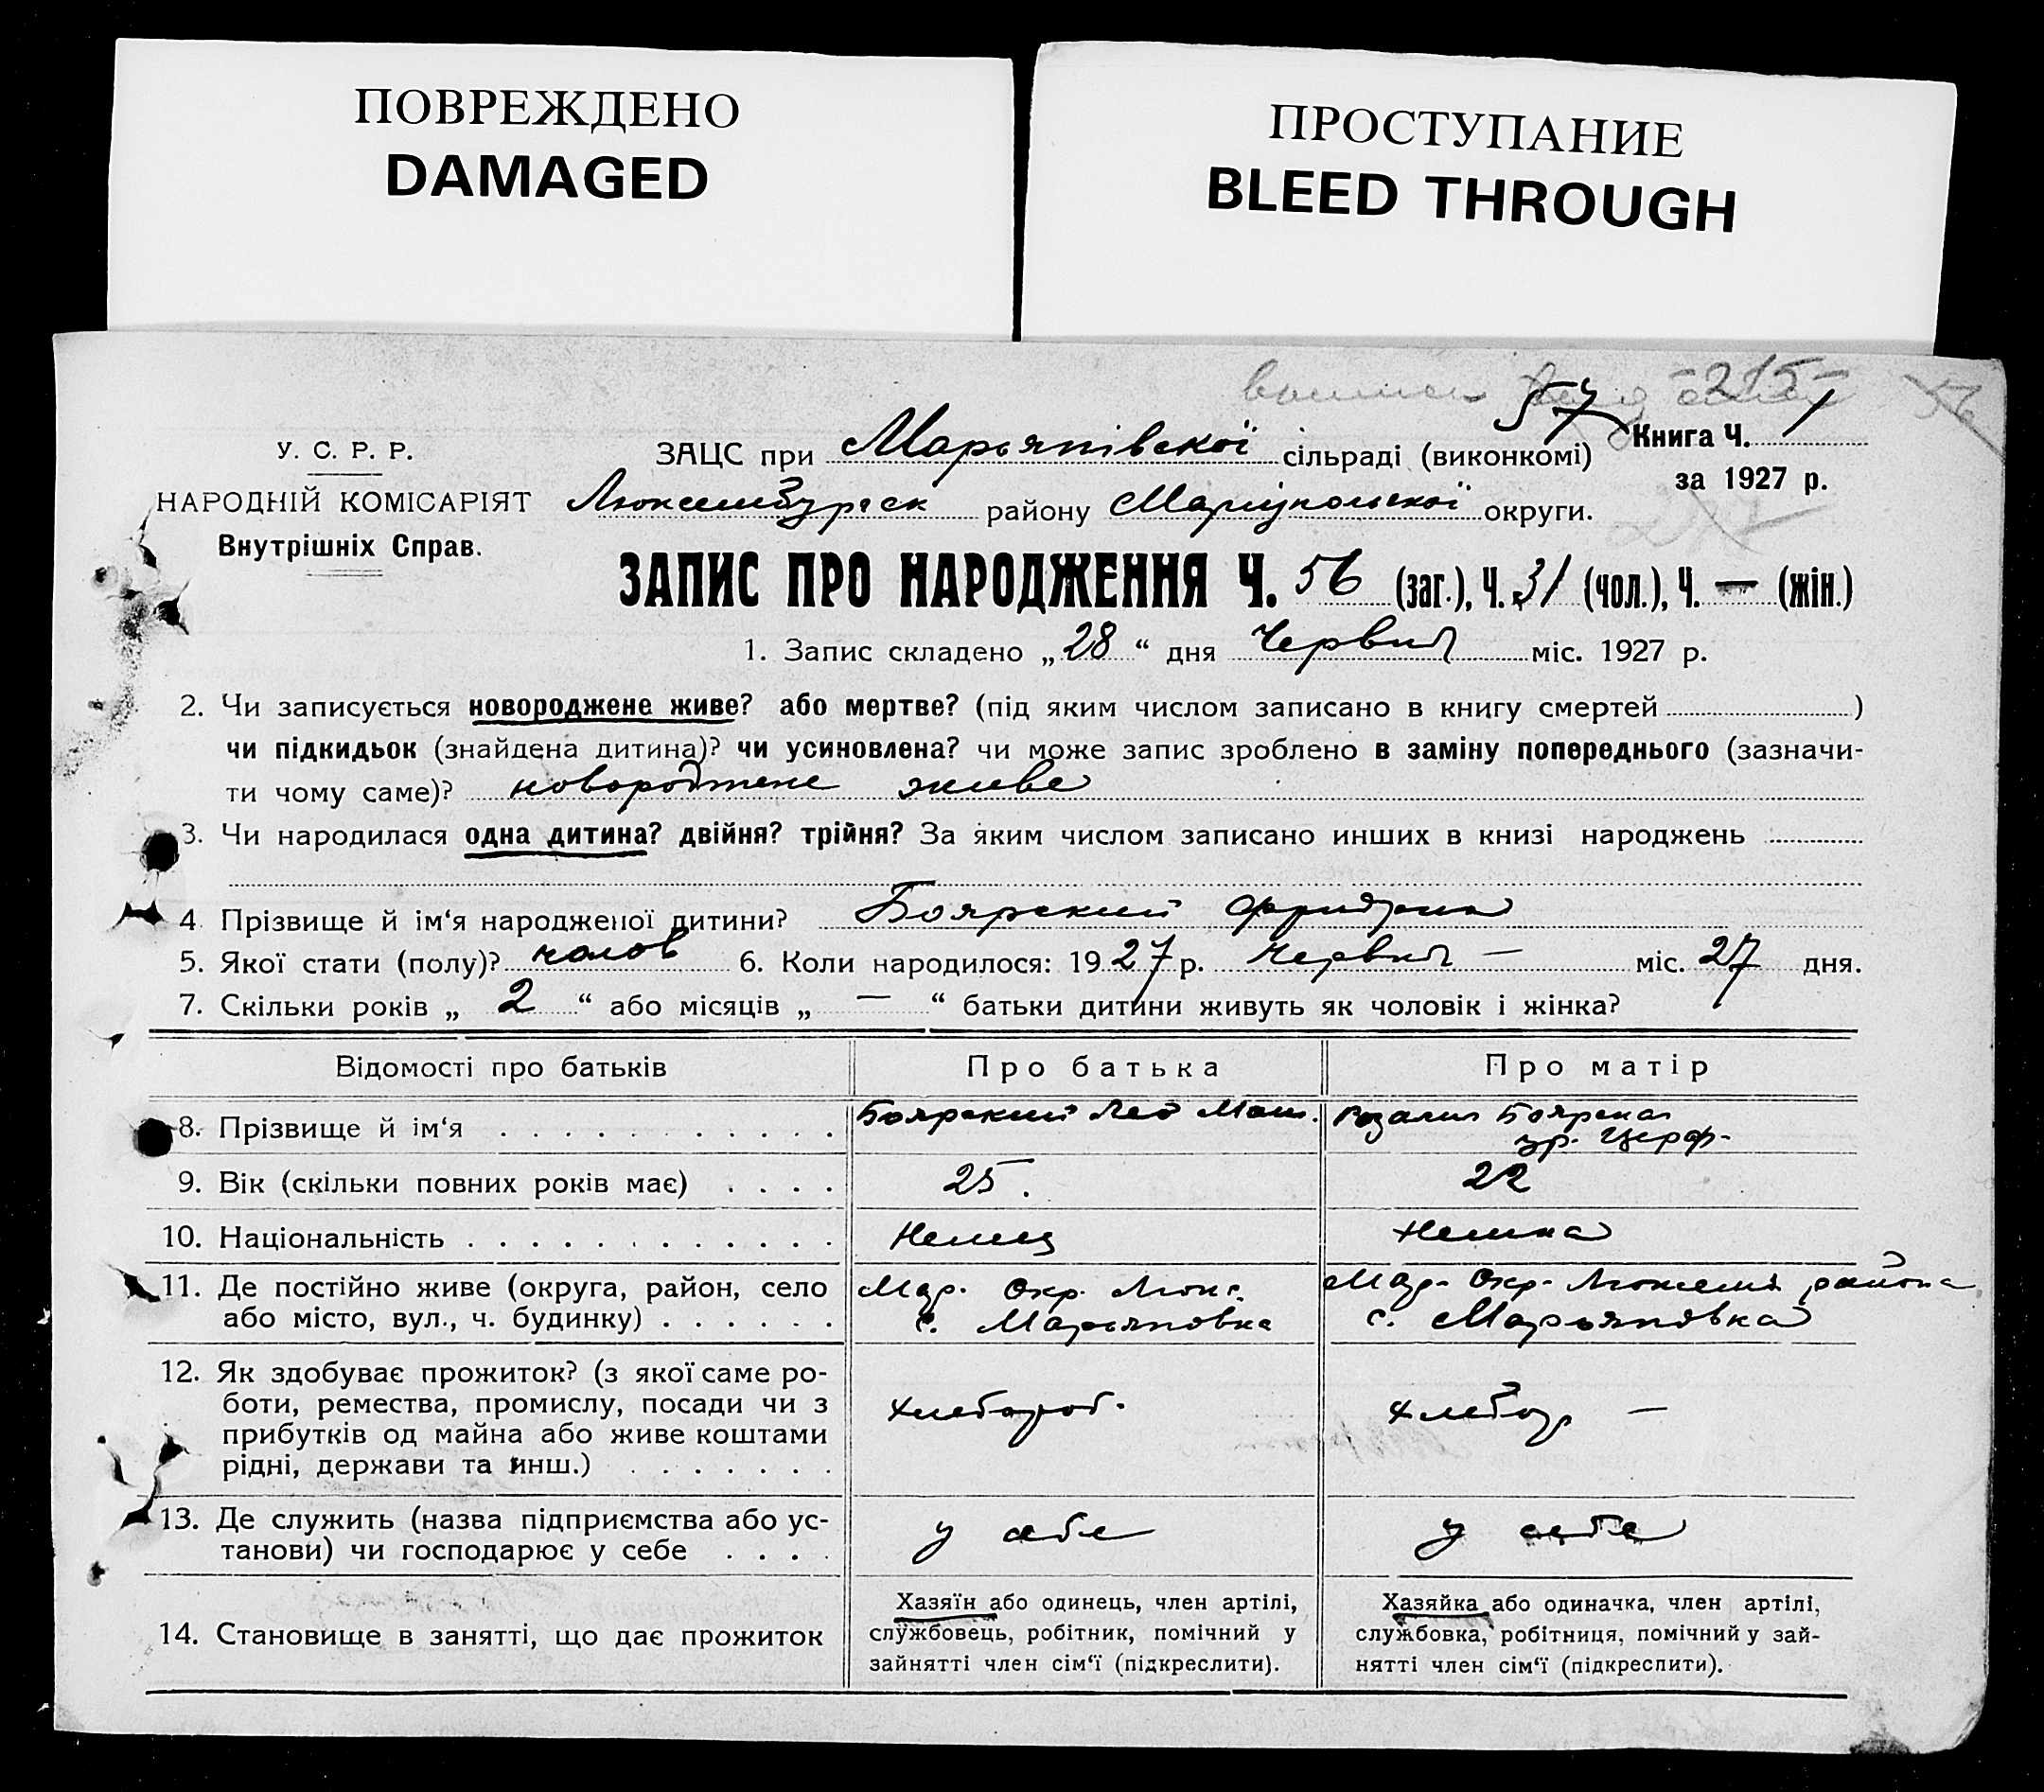 ПОВРЕЖДЕНО
DAMAGED
ПРОСТУПАНИЕ
BLEED THROUGH
215
57
У. С. Р. Р.
ЗАЦС при Марьянівскої сільраді (виконкомі)
Книга Ч. 1
за 1927 р.
НАРОДНІЙ КОМІСАРІЯТ
Внутрішніх Справ.
Люксембургск району Маріупольскої округи.
ЗАПИС ПРО НАРОДЖЕННЯ Ч. 56 (заг.), Ч. 31 (чол.), Ч. — (жін.)
1. Запис складено „ 28 “ дня Червня міс. 1927 р.
2. Чи записується новороджене живе? або мертве? (під яким числом записано в книгу смертей )
чи підкидьок (знайдена дитина)? чи усиновлена? чи може запис зроблено в заміну попереднього (зазначи-
ти чому саме)? новороджене живе
3. Чи народилася одна дитина? двійня? трійня? За яким числом записано инших в книзі народжень
4. Прізвище й ім‘я народженої дитини? Боярский Фридрих
5. Якої стати (полу)? чолов 6. Коли народилося: 1927 р. Червня — міс. 27 дня.
7. Скільки років „ 2 “ або місяців „ — “ батьки дитини живуть як чоловік і жінка?
Відомості про батьків
Про батька
Про матір
8. Прізвище й ім‘я
Боярский Лео
Розалия Боярская
9. Вік (скільки повних років має)
25.
22
10. Національність
Немец
Немка
11. Де постійно живе (округа, район, село
або місто, вул., ч. будинку)
Мар. Окр. Люкс.
с. Марьяновка
Мар. Окр. района
с. Марьяновка
12. Як здобуває прожиток? (з якої саме ро-
боти, ремества, промислу, посади чи з
прибутків од майна або живе коштами
рідні, держави та инш.)
хлебороб.
хлебор —
13. Де служить (назва підприємства або ус-
танови) чи господарює у себе
у себе
у себе
14. Становище в занятті, що дає прожиток
Хазяїн або одинець, член артілі,
службовець, робітник, помічний у
зайнятті член сім‘ї (підкреслити).
Хазяйка або одиначка, член артілі,
службовка, робітниця, помічний у зай-
нятті член сім‘ї (підкреслити).